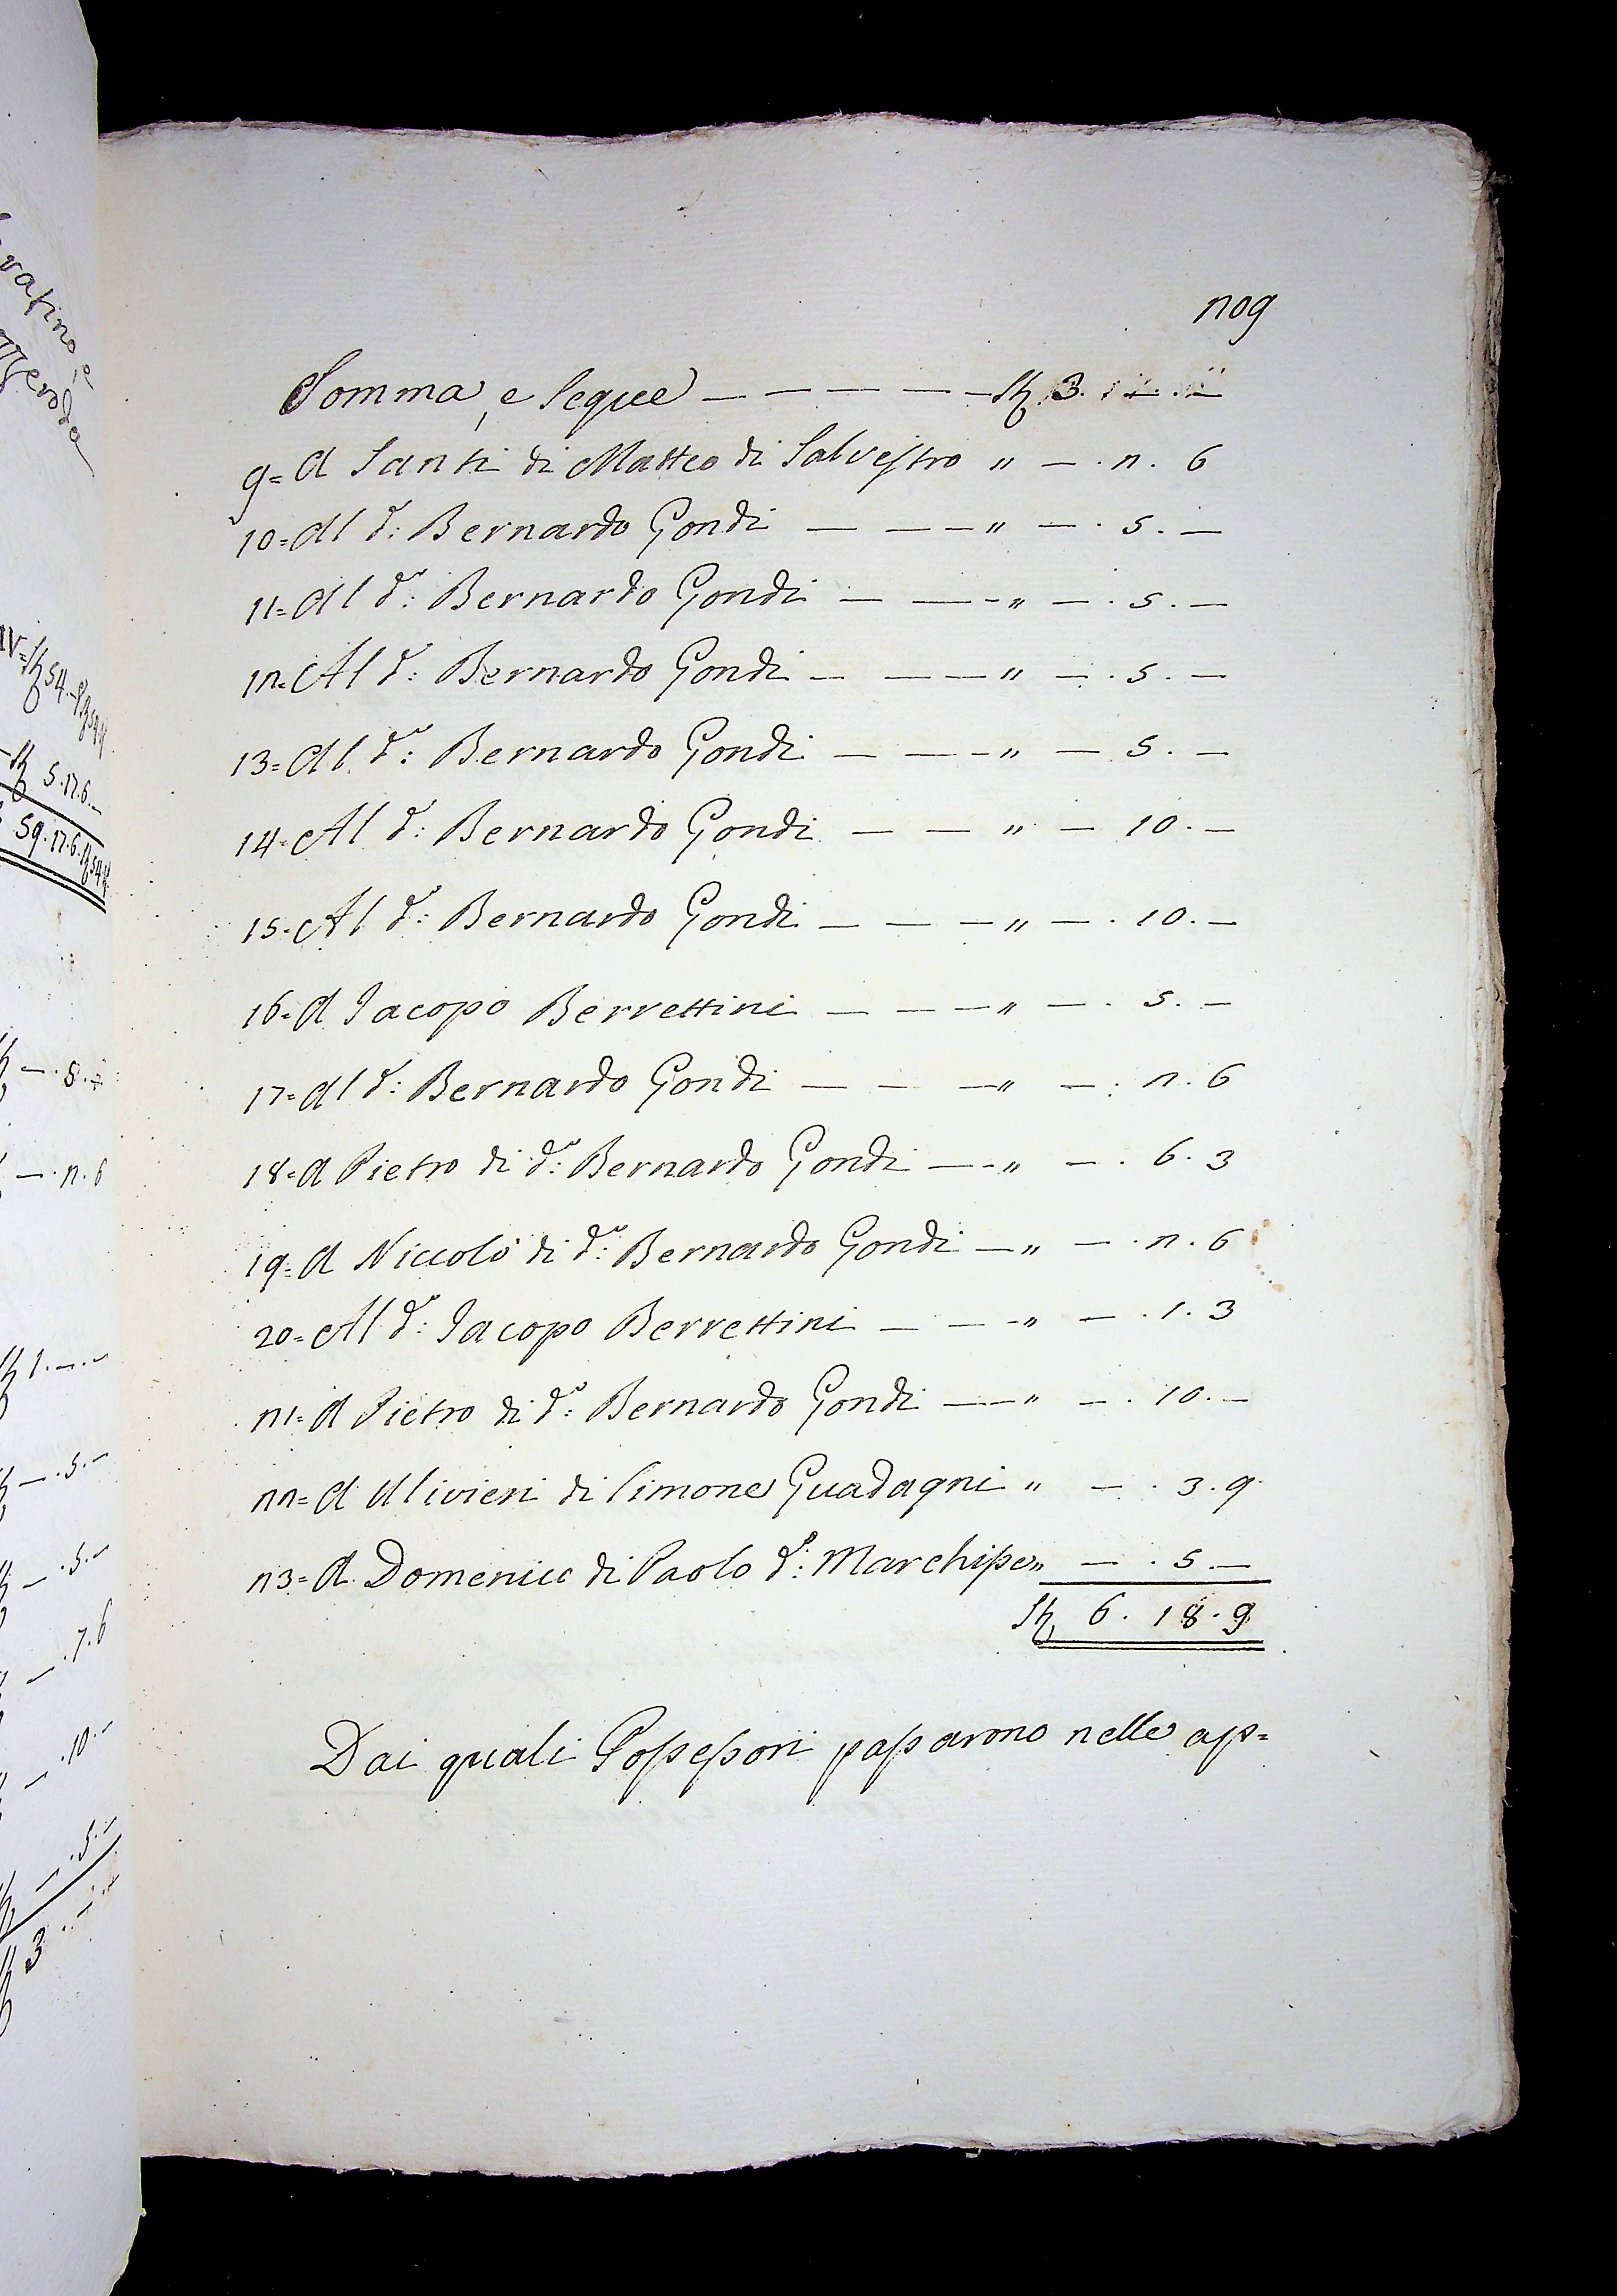 209
Somma, e segue — — — — — f 3. — . —
9= A Santi di Matteo di Salvestro " — . 2. 6
10= Al d.º: Bernardo Gondi — — — " — . 5. —
11= Al d.º: Bernardo Gondi — — — " — . 5. —
12= Al d.º: Bernardo Gondi — — — " — . 5. —
13= Al d.º: Bernardo Gondi — — — " — 5. —
14= Al d.º: Bernardo Gondi — — " — 10. —
15= Al d.º: Bernardo Gondi — — — " — . 10. —
16= A Jacopo Berrettini — — — " — . 5. —
17= Al d.º: Bernardo Gondi — — — " — . 2. 6
18= A Pietro di d.º: Bernardo Gondi — — " — . 6. 3
19= A Niccolò di d.º: Bernardo Gondi — " — . 2. 6
20= Al d.º: Jacopo Berrettini — — — " — . 1. 3
21= A Pietro di d.º: Bernardo Gondi — — " — . 10. —
22= A Ulivieri di Simone Guadagni " — . 3. 9
23= A Domenico di Paolo d.º: Marchisse " — . 5 —
f 6. 18. 9
Dai quali Possessori passarono nelle ap=